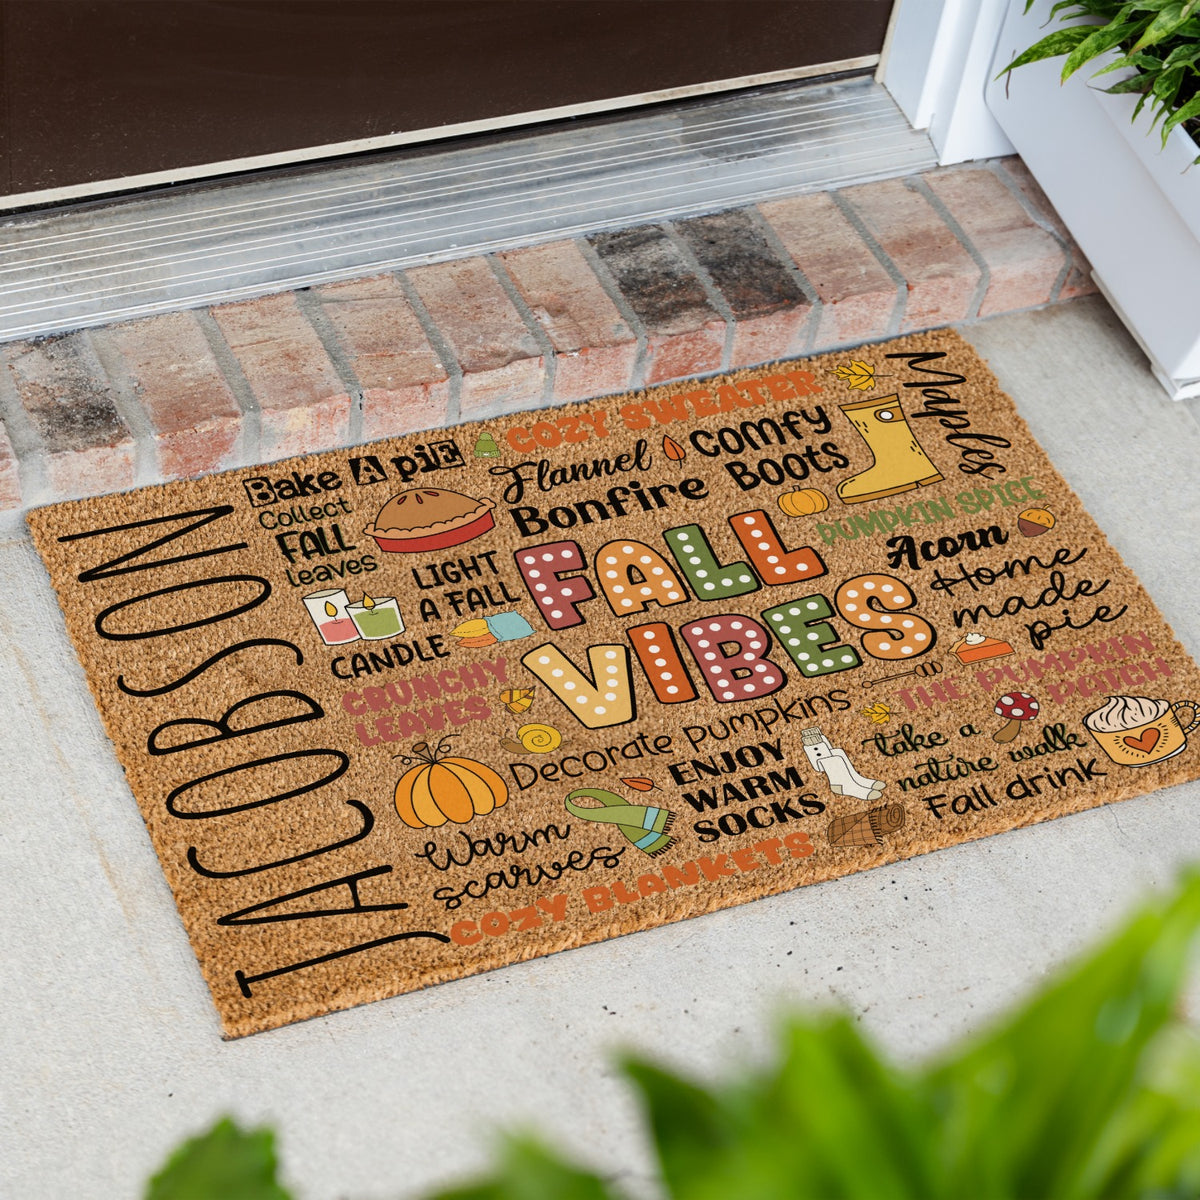 JACOBSON
Bake A piE
Collect
FALL
leaves
LIGHT
A FALL
CANDLE
CRUNCHY
LEAVES
COZY SWEATER
Flannel
Comfy
Boots
Bonfire
Maples
FALL
VIBES
PUMPKIN SPICE
Acorn
Home
made
pie
THE PUMPKIN
PATCH
Decorate pumpkins
ENJOY
WARM
SOCKS
take a
nature walk
Fall drink
Warm
scarves
COZY BLANKETS